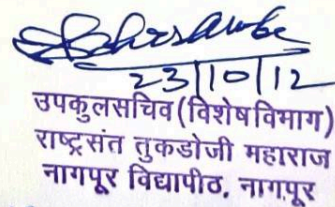 23/10/12
उपकुलसचिव (विशेष विभाग)
राष्ट्रसंत तुकडोजी महाराज
नागपूर विद्यापीठ, नागपूर